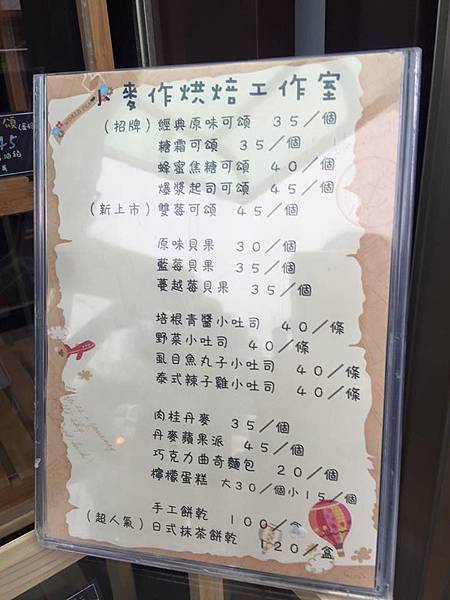 小麥作烘焙工作室
(招牌)經典原味可頌 35/個
糖霜可頌 35/個
蜂蜜焦糖可頌 40/個
爆漿起司可頌 45/個
(新上市)雙莓可頌 45/個
原味貝果 30/個
藍莓貝果 35/個
蔓越莓貝果 35/個
培根青醬小吐司 40/條
野菜小吐司 40/條
虱目魚丸子小吐司 40/條
泰式辣子雞小吐司 40/條
肉桂丹麥 35/個
丹麥蘋果派 45/個
巧克力曲奇麵包 20/個
檸檬蛋糕 大30/個小15/個
手工餅乾 100/盒
(超人氣)日式抹茶餅乾 120/盒